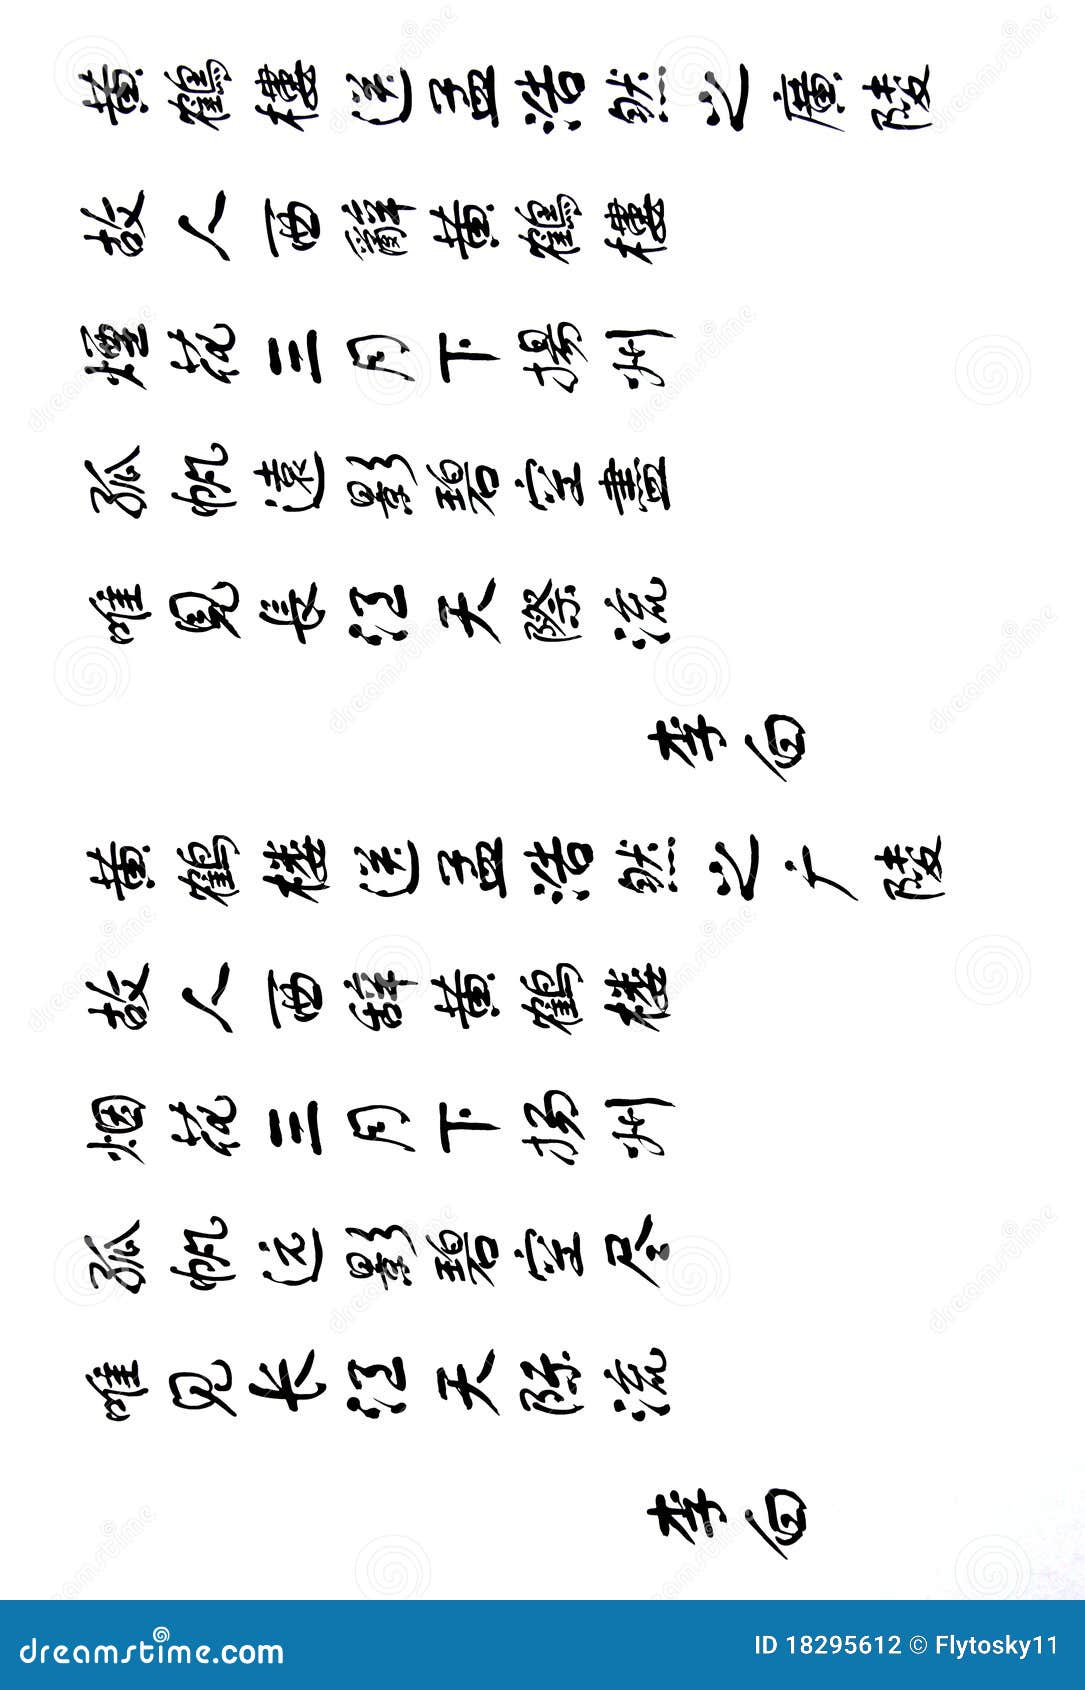 黄鶴樓送孟浩然之廣陵
故人西辭黄鶴樓
煙花三月下揚州
孤帆遠影碧空盡
唯見長江天際流
李白
黄鹤楼送孟浩然之广陵
故人西辞黄鹤楼
烟花三月下扬州
孤帆远影碧空尽
唯见长江天际流
李白
dreamstime.com
ID 18295612 © Flytosky11